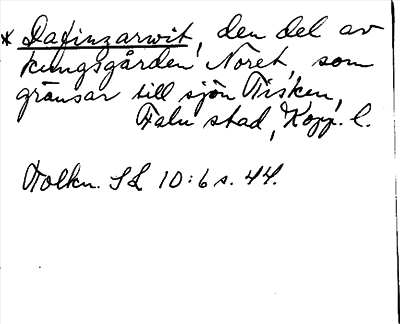 * Dafinzarwit, den del av
kungsgården Noret, som
gränsar till sjön Tisken,
Falu stad, Kopp. l.
Tolkn. SL 10:6 s. 44.